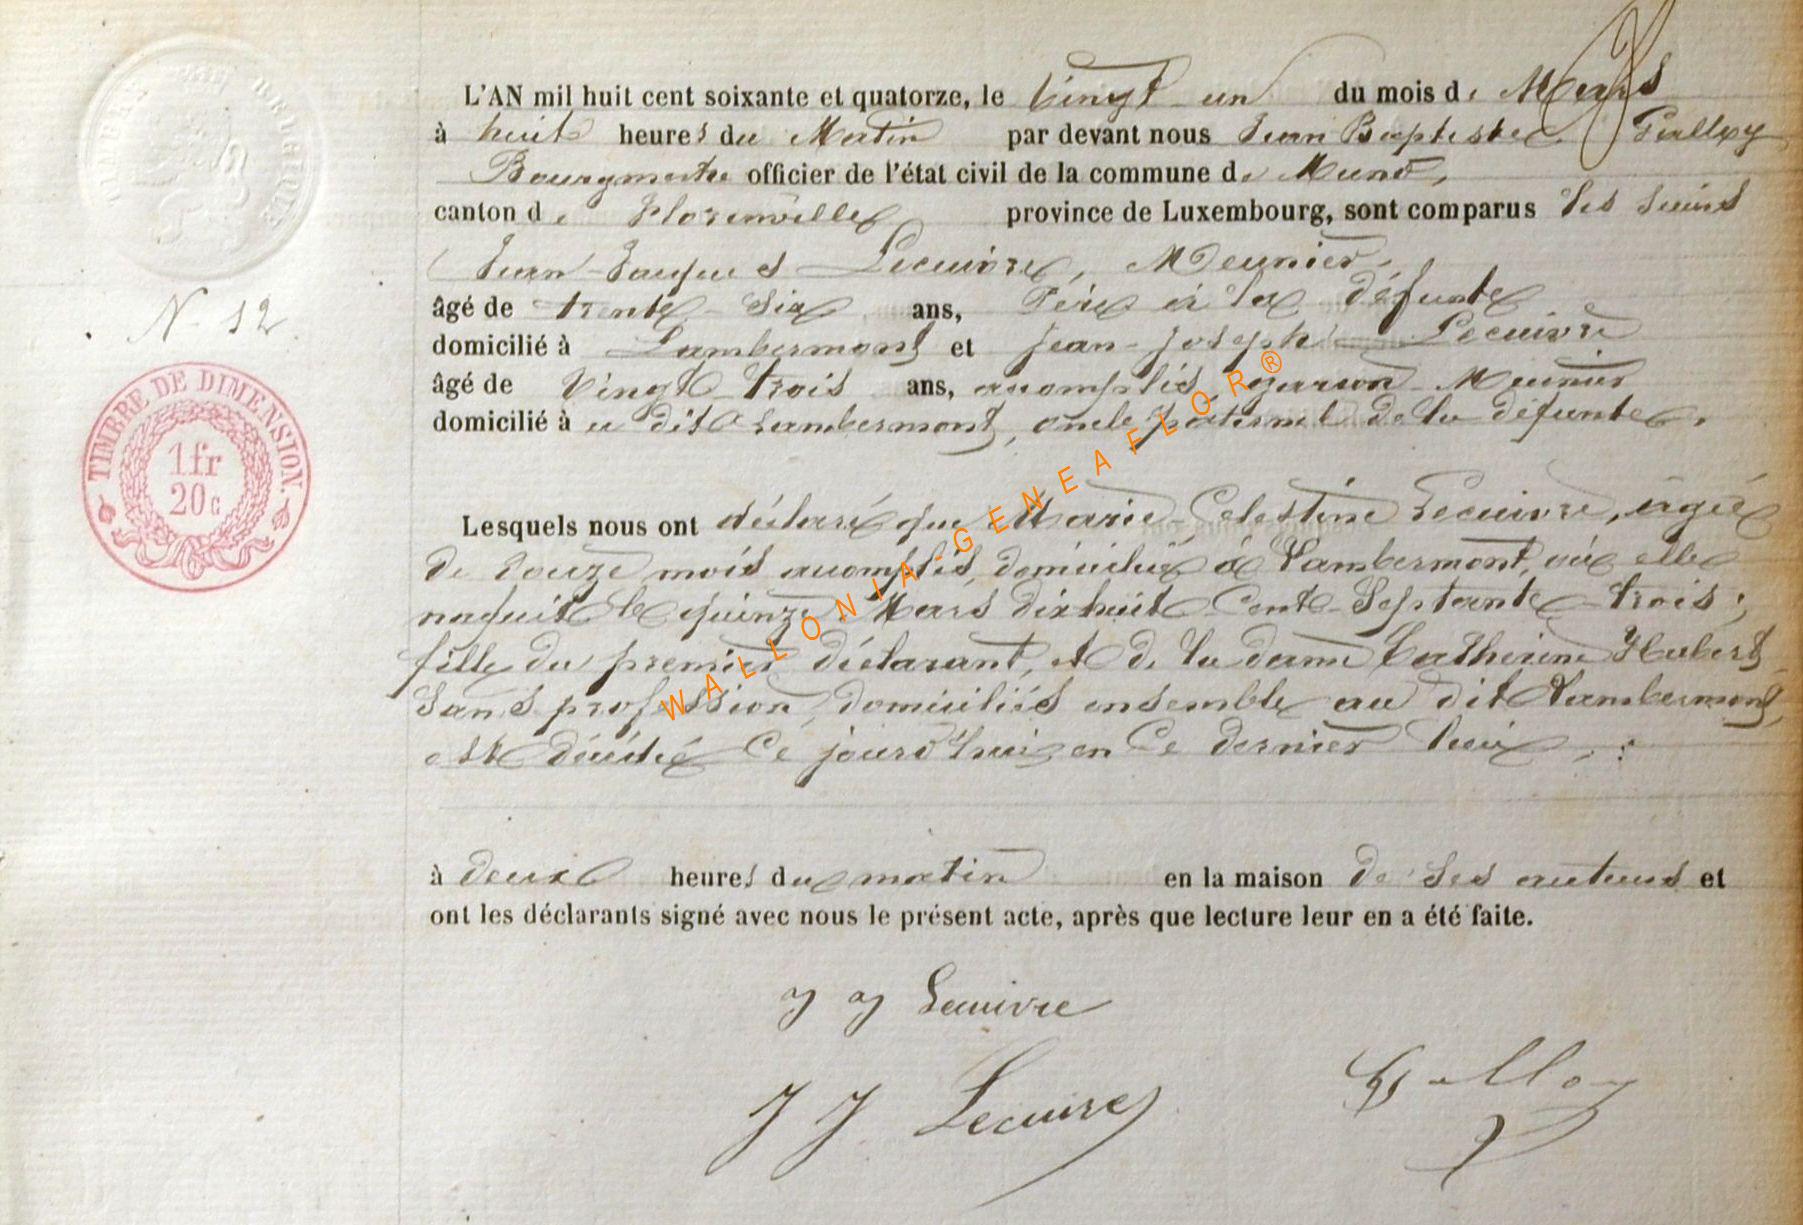 L'AN mil huit cent soixante et quatorze, le vingt-un du mois de Mars
à huit heures du Matin par devant nous Jean Baptiste
Bourgmestre officier de l'état civil de la commune de Muno,
canton de Florenville province de Luxembourg, sont comparus les sieurs
Jean-Jacques Lecuivre, Meunier,
N- 12
âgé de trente-six ans, Père à la défunte
domicilié à Lambermont et Jean-Joseph Lecuivre
âgé de vingt-trois ans, accomplis, garçon-Meunier
domicilié à au dit Lambermont, oncle paternel de la défunte.
TIMBRE DE DIMENSION.
1fr
20c
Lesquels nous ont déclaré que Marie Celestine Lecuivre, âgée
de douze mois accomplis, domiciliée à Lambermont, où elle
naquit le quinze Mars dix huit-Cent-Septante-trois;
fille du premier déclarant, et de la dame Catherine Hubert
Sans profession, domiciliés ensemble au dit Lambermont,
est décédée Ce jourd'hui en Ce dernier lieu,
à deux heures du matin en la maison de ses auteurs et
ont les déclarants signé avec nous le présent acte, après que lecture leur en a été faite.
J J Lecuivre
J J Lecuivre
WALLONIA GENEAFLOR®